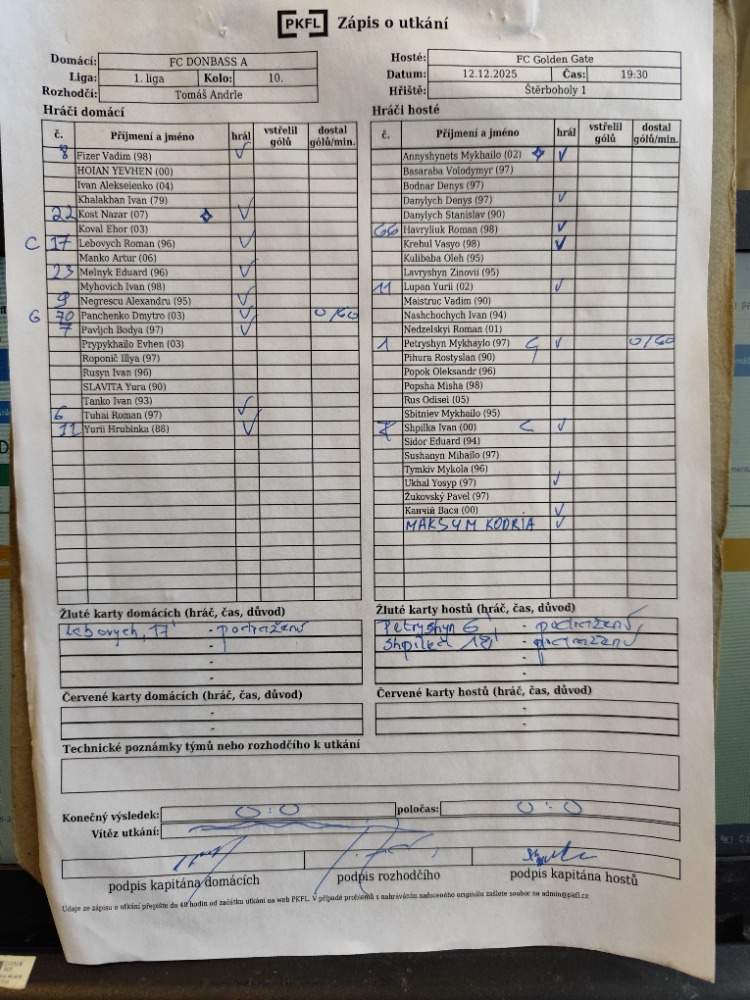 PKFL Zápis o utkání
Domácí: FC DONBASS A
Liga: 1. liga Kolo: 10.
Rozhodčí: Tomáš Andrle
Hosté: FC Golden Gate
Datum: 12.12.2025 Čas: 19:30
Hřiště: Štěrboholy 1
Hráči domácí
č. Příjmení a jméno hrál vstřelil gólů dostal gólů/min.
8 Fizer Vadim (98) ✓
HOIAN YEVHEN (00)
Ivan Alekseienko (04)
Khalakhan Ivan (79)
22 Kost Nazar (07) ✓
Koval Ehor (03)
C 17 Lebovych Roman (96) ✓
Manko Artur (06)
23 Melnyk Eduard (96) ✓
Myhovich Ivan (98)
9 Negrescu Alexandru (95) ✓
G 70 Panchenko Dmytro (03) ✓ 0/60
7 Pavljch Bodya (97) ✓
Prypykhailo Evhen (03)
Roponič Illya (97)
Rusyn Ivan (96)
SLAVITA Yura (90)
Tanko Ivan (93) ✓
6 Tuhai Roman (97) ✓
11 Yurii Hrubinka (88) ✓
Hráči hosté
č. Příjmení a jméno hrál vstřelil gólů dostal gólů/min.
Annyshynets Mykhailo (02) ✓
Basaraba Volodymyr (97)
Bodnar Denys (97)
Danylych Denys (97) ✓
Danylych Stanislav (90)
66 Havryliuk Roman (98) ✓
Krehul Vasyo (98) ✓
Kulibaba Oleh (95)
Lavryshyn Zinovii (95)
11 Lupan Yurii (02) ✓
Maistruc Vadim (90)
Nashchochych Ivan (94)
Nedzelskyi Roman (01)
1 Petryshyn Mykhaylo (97) G ✓ 0/60
Pihura Rostyslav (90)
Popok Oleksandr (96)
Popsha Misha (98)
Rus Odisei (05)
Sbitniev Mykhailo (95)
Shpilka Ivan (00) C ✓
Sidor Eduard (94)
Sushanyn Mihailo (97)
Tymkiv Mykola (96)
Ukhal Yosyp (97) ✓
Žukovský Pavel (97)
Канчій Вася (00) ✓
MAKSYM KODRIA ✓
Žluté karty domácích (hráč, čas, důvod)
Lebovych, 17' - podražení
Žluté karty hostů (hráč, čas, důvod)
Petryshyn 6' - podražení
Shpilka 18' - podražení
Červené karty domácích (hráč, čas, důvod)
Červené karty hostů (hráč, čas, důvod)
Technické poznámky týmů nebo rozhodčího k utkání
Konečný výsledek: 0:0 poločas: 0:0
Vítěz utkání:
podpis kapitána domácích podpis rozhodčího podpis kapitána hostů
Údaje ze zápisu o utkání přepište do 48 hodin od začátku utkání na web PKFL. V případě problémů s nahráváním naťoceného originálu zašlete soubor na admin@pkfl.cz